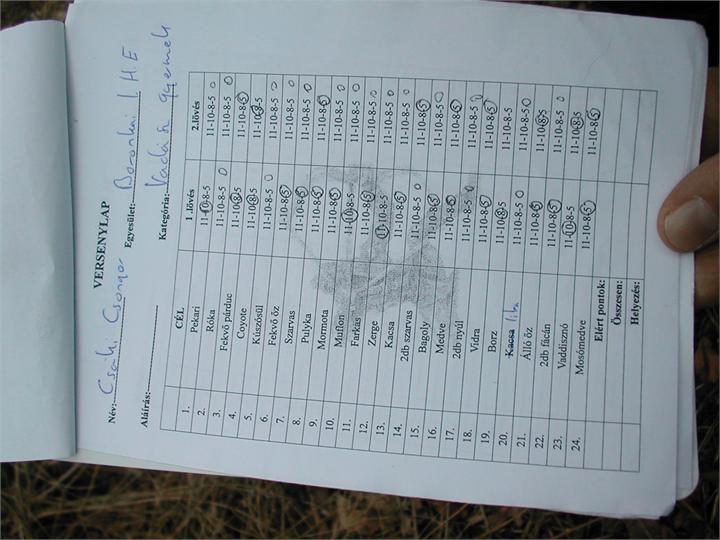 VERSENYLAP
Név: Csáki Csongor Egyesület: Boronkai I.H.E
Aláírás: Kategória: Vadász gyermek
CÉL 1.lövés 2.lövés
1. Pekari 11-10-8-5 11-10-8-5 0
2. Róka 11-10-8-5 0 11-10-8-5 0
3. Fekvő párduc 11-10-8-5 11-10-8-5
4. Coyote 11-10-8-5 11-10-8-5
5. Kúszósül 11-10-8-5 0 11-10-8-5 0
6. Fekvő őz 11-10-8-5 11-10-8-5 0
7. Szarvas 11-10-8-5 11-10-8-5 0
8. Pulyka 11-10-8-5 11-10-8-5
9. Mormota 11-10-8-5 11-10-8-5 0
10. Muflon 11-10-8-5 11-10-8-5 0
11. Farkas 11-10-8-5 11-10-8-5 0
12. Zerge 11-10-8-5 11-10-8-5 0
13. Kacsa 11-10-8-5 11-10-8-5 0
14. 2db szarvas 11-10-8-5 0 11-10-8-5
15. Bagoly 11-10-8-5 11-10-8-5 0
16. Medve 11-10-8-5 11-10-8-5
17. 2db nyúl 11-10-8-5 0 11-10-8-5 0
18. Vidra 11-10-8-5 11-10-8-5
19. Borz 11-10-8-5 11-10-8-5
20. Kacsa liba 11-10-8-5 0 11-10-8-5 0
21. Álló őz 11-10-8-5 11-10-8-5
22. 2db fácán 11-10-8-5 11-10-8-5 0
23. Vaddisznó 11-10-8-5 11-10-8-5
24. Mosómedve 11-10-8-5 11-10-8-5
Elért pontok:
Összesen:
Helyezés: